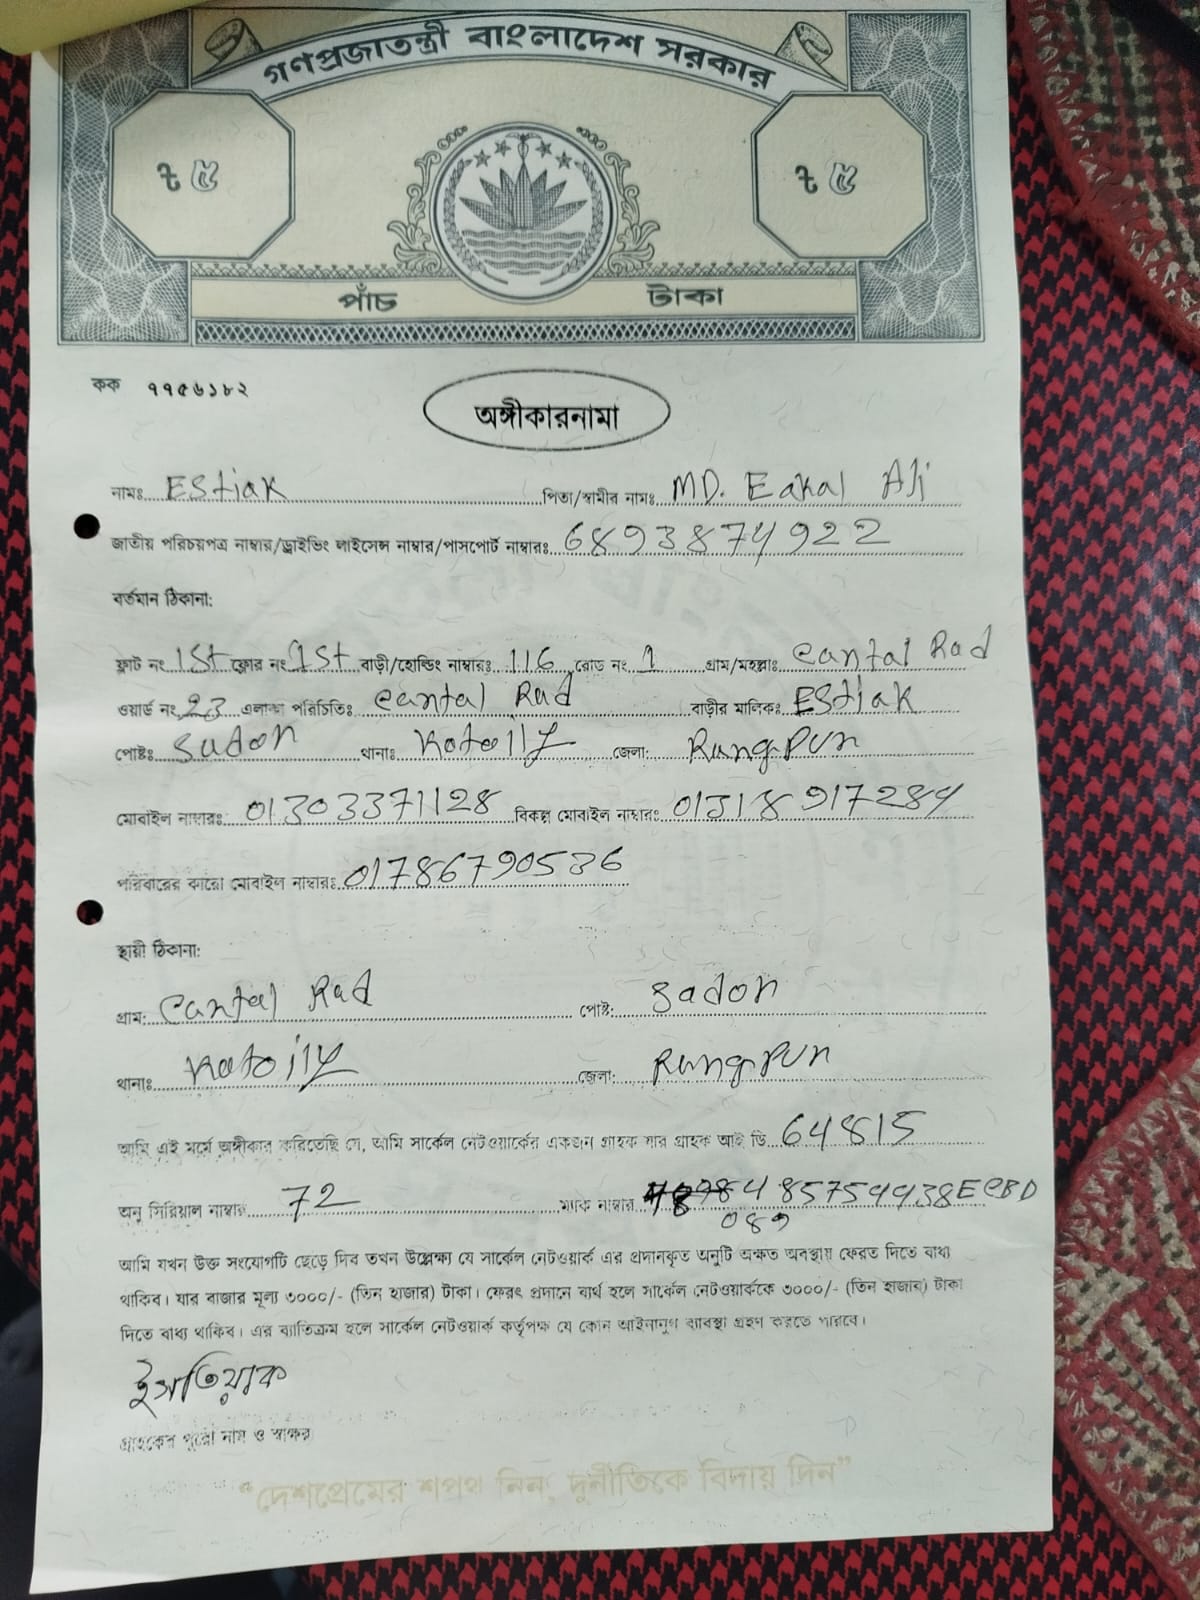 গণপ্রজাতন্ত্রী বাংলাদেশ সরকার
৳ ৫ ৳ ৫
পাঁচ টাকা
কক ৭৭৫৬১৮২
অঙ্গীকারনামা
নামঃ EStiak পিতা/স্বামীর নামঃ MD. Eakal Ali
জাতীয় পরিচয়পত্র নাম্বার/ড্রাইভিং লাইসেন্স নাম্বার/পাসপোর্ট নাম্বারঃ 6893874922
বর্তমান ঠিকানা:
ফ্লাট নং 1St ফ্লোর নং 1st বাড়ী/হোল্ডিং নাম্বারঃ 116 রোড নং 1 গ্রাম/মহল্লাঃ Cantal Rad
ওয়ার্ড নং 23 এলাকা পরিচিতিঃ Cantal Rad বাড়ীর মালিক: EStiak
পোষ্টঃ Sadon থানাঃ Kotoily জেলা: Rangpun
মোবাইল নাম্বারঃ 01303371128 বিকল্প মোবাইল নাম্বারঃ
পরিবারের কারো মোবাইল নাম্বারঃ 01786790536
স্থায়ী ঠিকানা:
গ্রাম: Cantal Rad পোষ্ট: Sadon
থানাঃ Kotoily জেলা: Rangpun
আমি এই মর্মে অঙ্গীকার করিতেছি যে, আমি সার্কেল নেটওয়ার্কের একজন গ্রাহক যার গ্রাহক আই ডি 64815
অনু সিরিয়াল নাম্বার 72 ম্যাক নাম্বার
089
আমি যখন উক্ত সংযোগটি ছেড়ে দিব তখন উল্লেক্ষ্য যে সার্কেল নেটওয়ার্ক এর প্রদানকৃত অনুটি অক্ষত অবস্থায় ফেরত দিতে বাধ্য
থাকিব। যার বাজার মূল্য ৩০০০/- (তিন হাজার) টাকা। ফেরৎ প্রদানে ব্যর্থ হলে সার্কেল নেটওয়ার্ককে ৩০০০/- (তিন হাজার) টাকা
দিতে বাধ্য থাকিব। এর ব্যতিক্রম হলে সার্কেল নেটওয়ার্ক কর্তৃপক্ষ যে কোন আইনানুগ ব্যবস্থা গ্রহণ করতে পারবে।
ইসতিয়াক
গ্রাহকের পুরো নাম ও স্বাক্ষর
“দেশপ্রেমের শপথ নিন, দুর্নীতিকে বিদায় দিন”